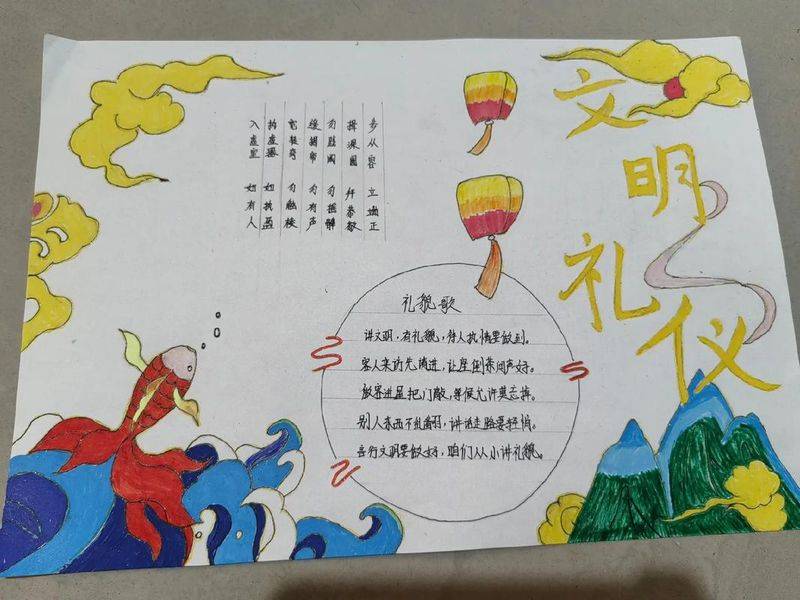 文明礼仪
步从容 立端正
揖深圆 拜恭敬
勿践阈 勿摇髀
缓揭帘 勿有声
宽转弯 勿触棱
执虚器 如执盈
入虚室 如有人
礼貌歌
讲文明,有礼貌,待人热情要做到。
客人来访先请进,让座倒茶问声好。
做客进屋把门敲,等候允许莫忘掉。
别人东西不乱翻,讲话走路要轻悄。
言行文明要做好,咱们从小讲礼貌。